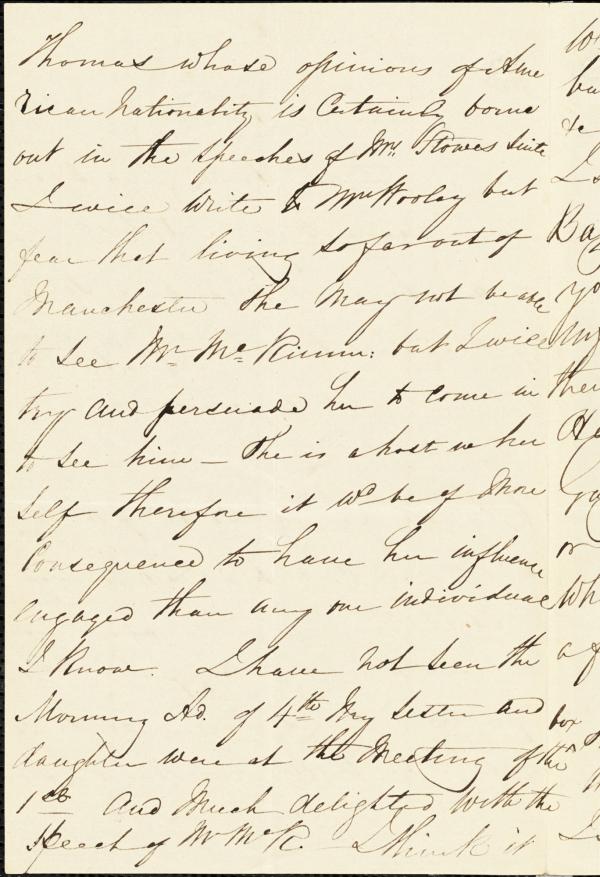 Thomas whose opinions of Ame
rican Nationality is Certainly borne
out in the speeches of Mrs. Stowes suite
I will write to Mrs Wooley but
fear that living so far out of
Manchester She may not be able
to see Mr. Mc. Kimm: but I will
try and persuade her to come in
to see him — She is a host in her
self therefore it wd be of More
Consequence to have her influence
engaged than any one individual
I Know. I have not seen the
Morning Ad. of 4th My Sister and
daughter were at the Meeting of the
1st And Much delighted with the
Speech of Mr McK. I think it
bu
&c
yo
ther
or
Wh
a f
box